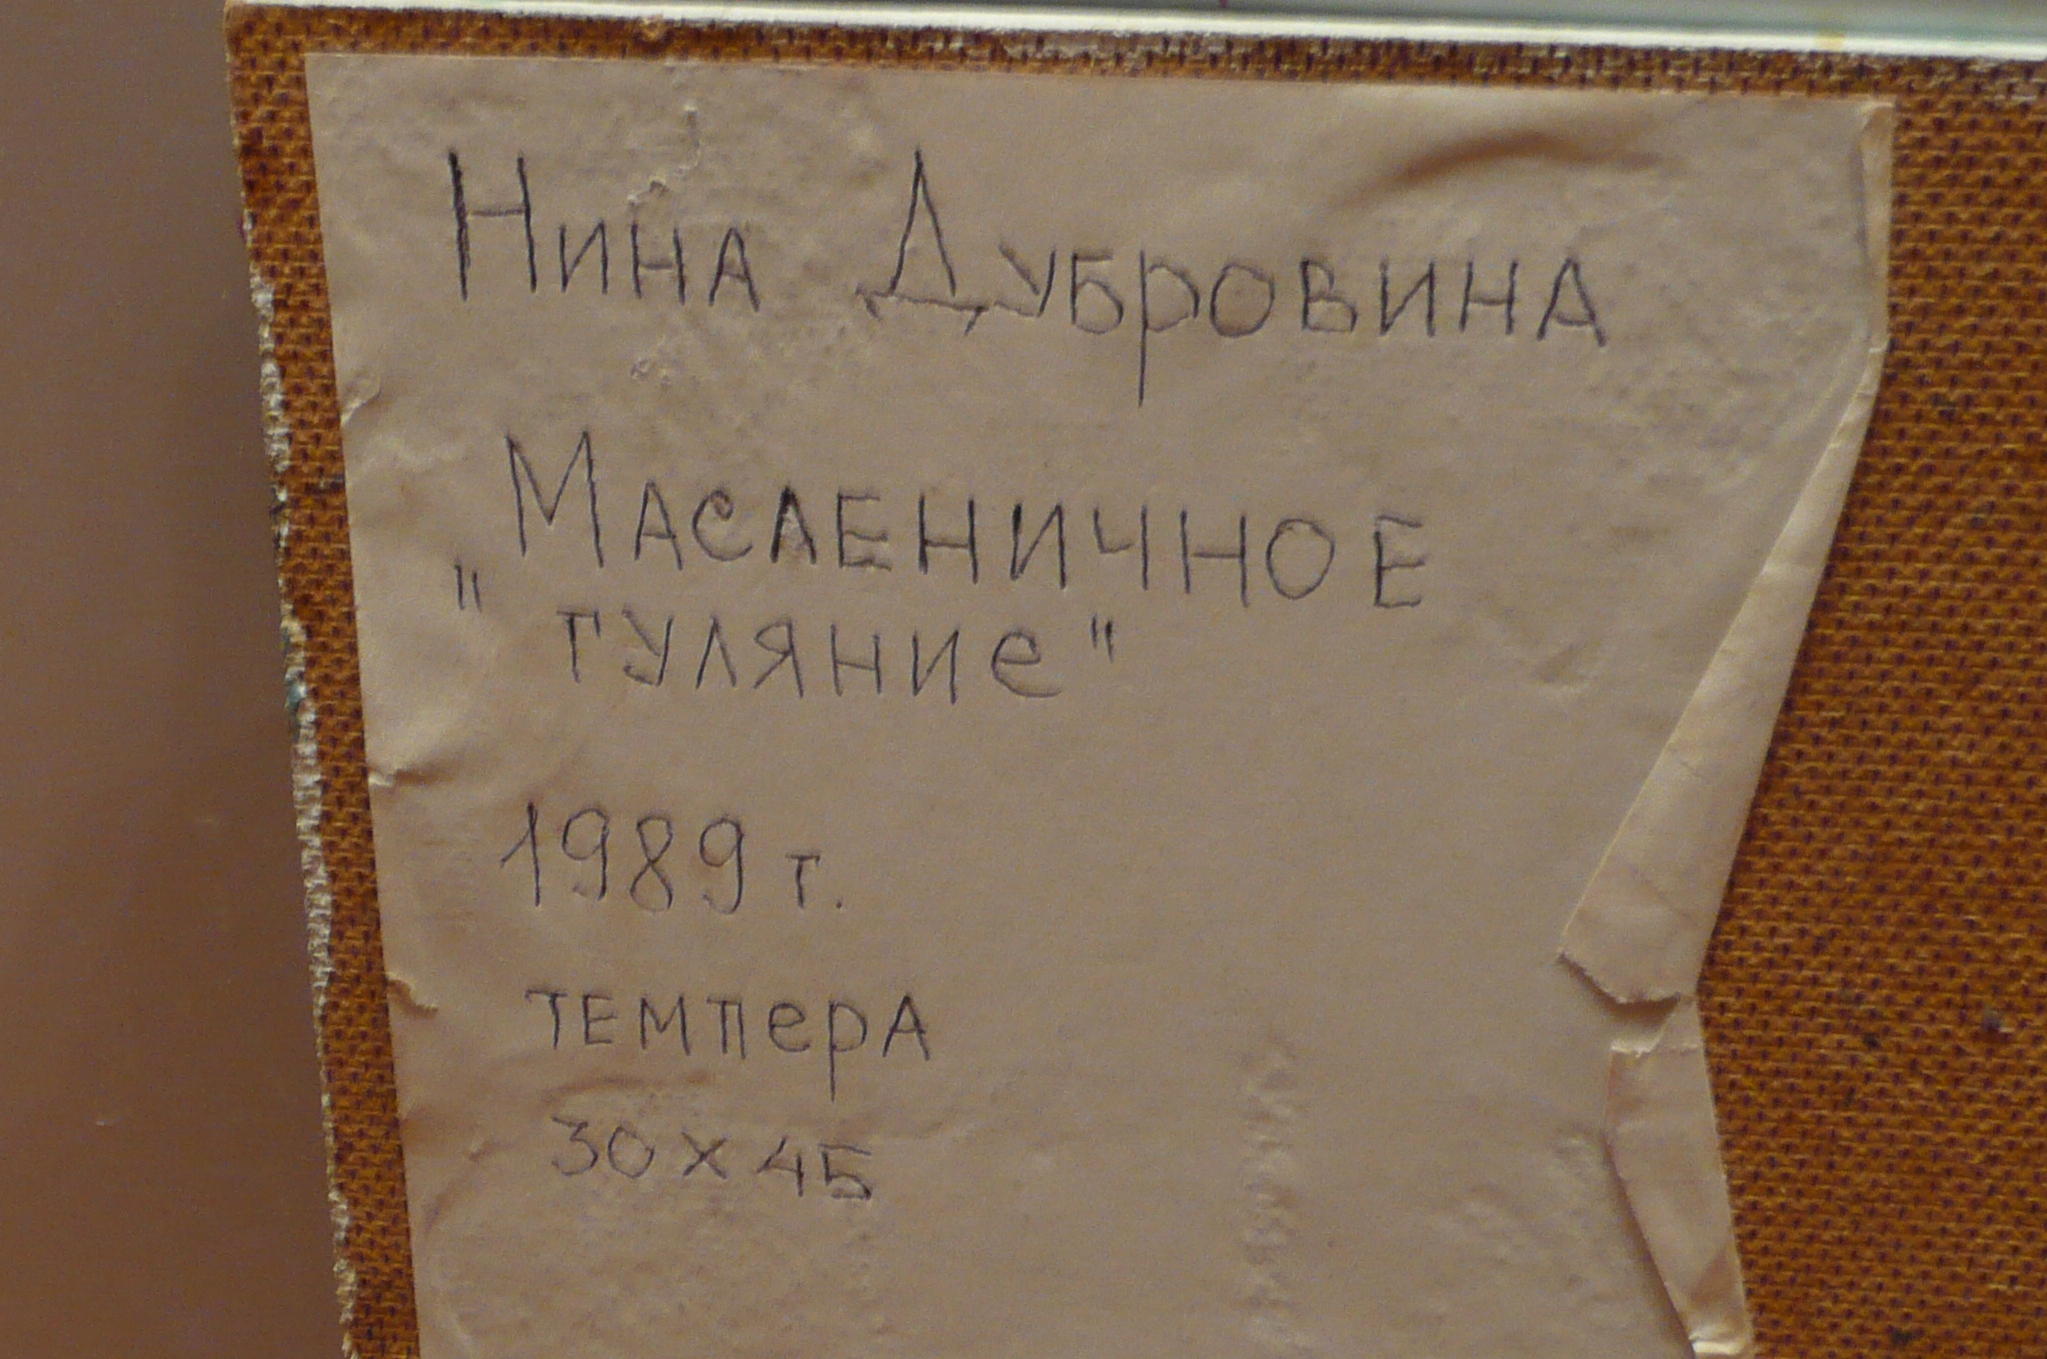 Нина Дубровина
Масленичное
"гуляние"
1989 г.
темпера
30 х 45